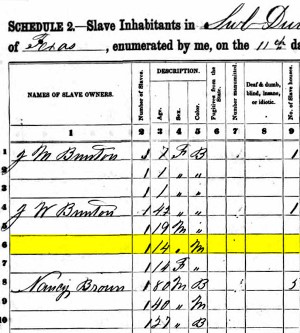 SCHEDULE 2.—Slave Inhabitants in Sub Du
of Texas, enumerated by me, on the 11th da
NAMES OF SLAVE OWNERS.
Number of Slaves.
DESCRIPTION.
Age.
Sex.
Color.
Fugitives from the State.
Number manumitted.
Deaf & dumb, blind, insane, or idiotic.
No. of Slave houses.
1 2 3 4 5 6 7 8 9
1 J M Bunton 1 7 F B 1
2 1 1 " "
3 1 1 " "
4 J W Bunton 1 42 " " 1
5 1 19 M "
6 1 14 " M
7 1 14 F "
8 Nancy Brown 1 80 M B 5
9 1 40 " M
10 1 37 " B